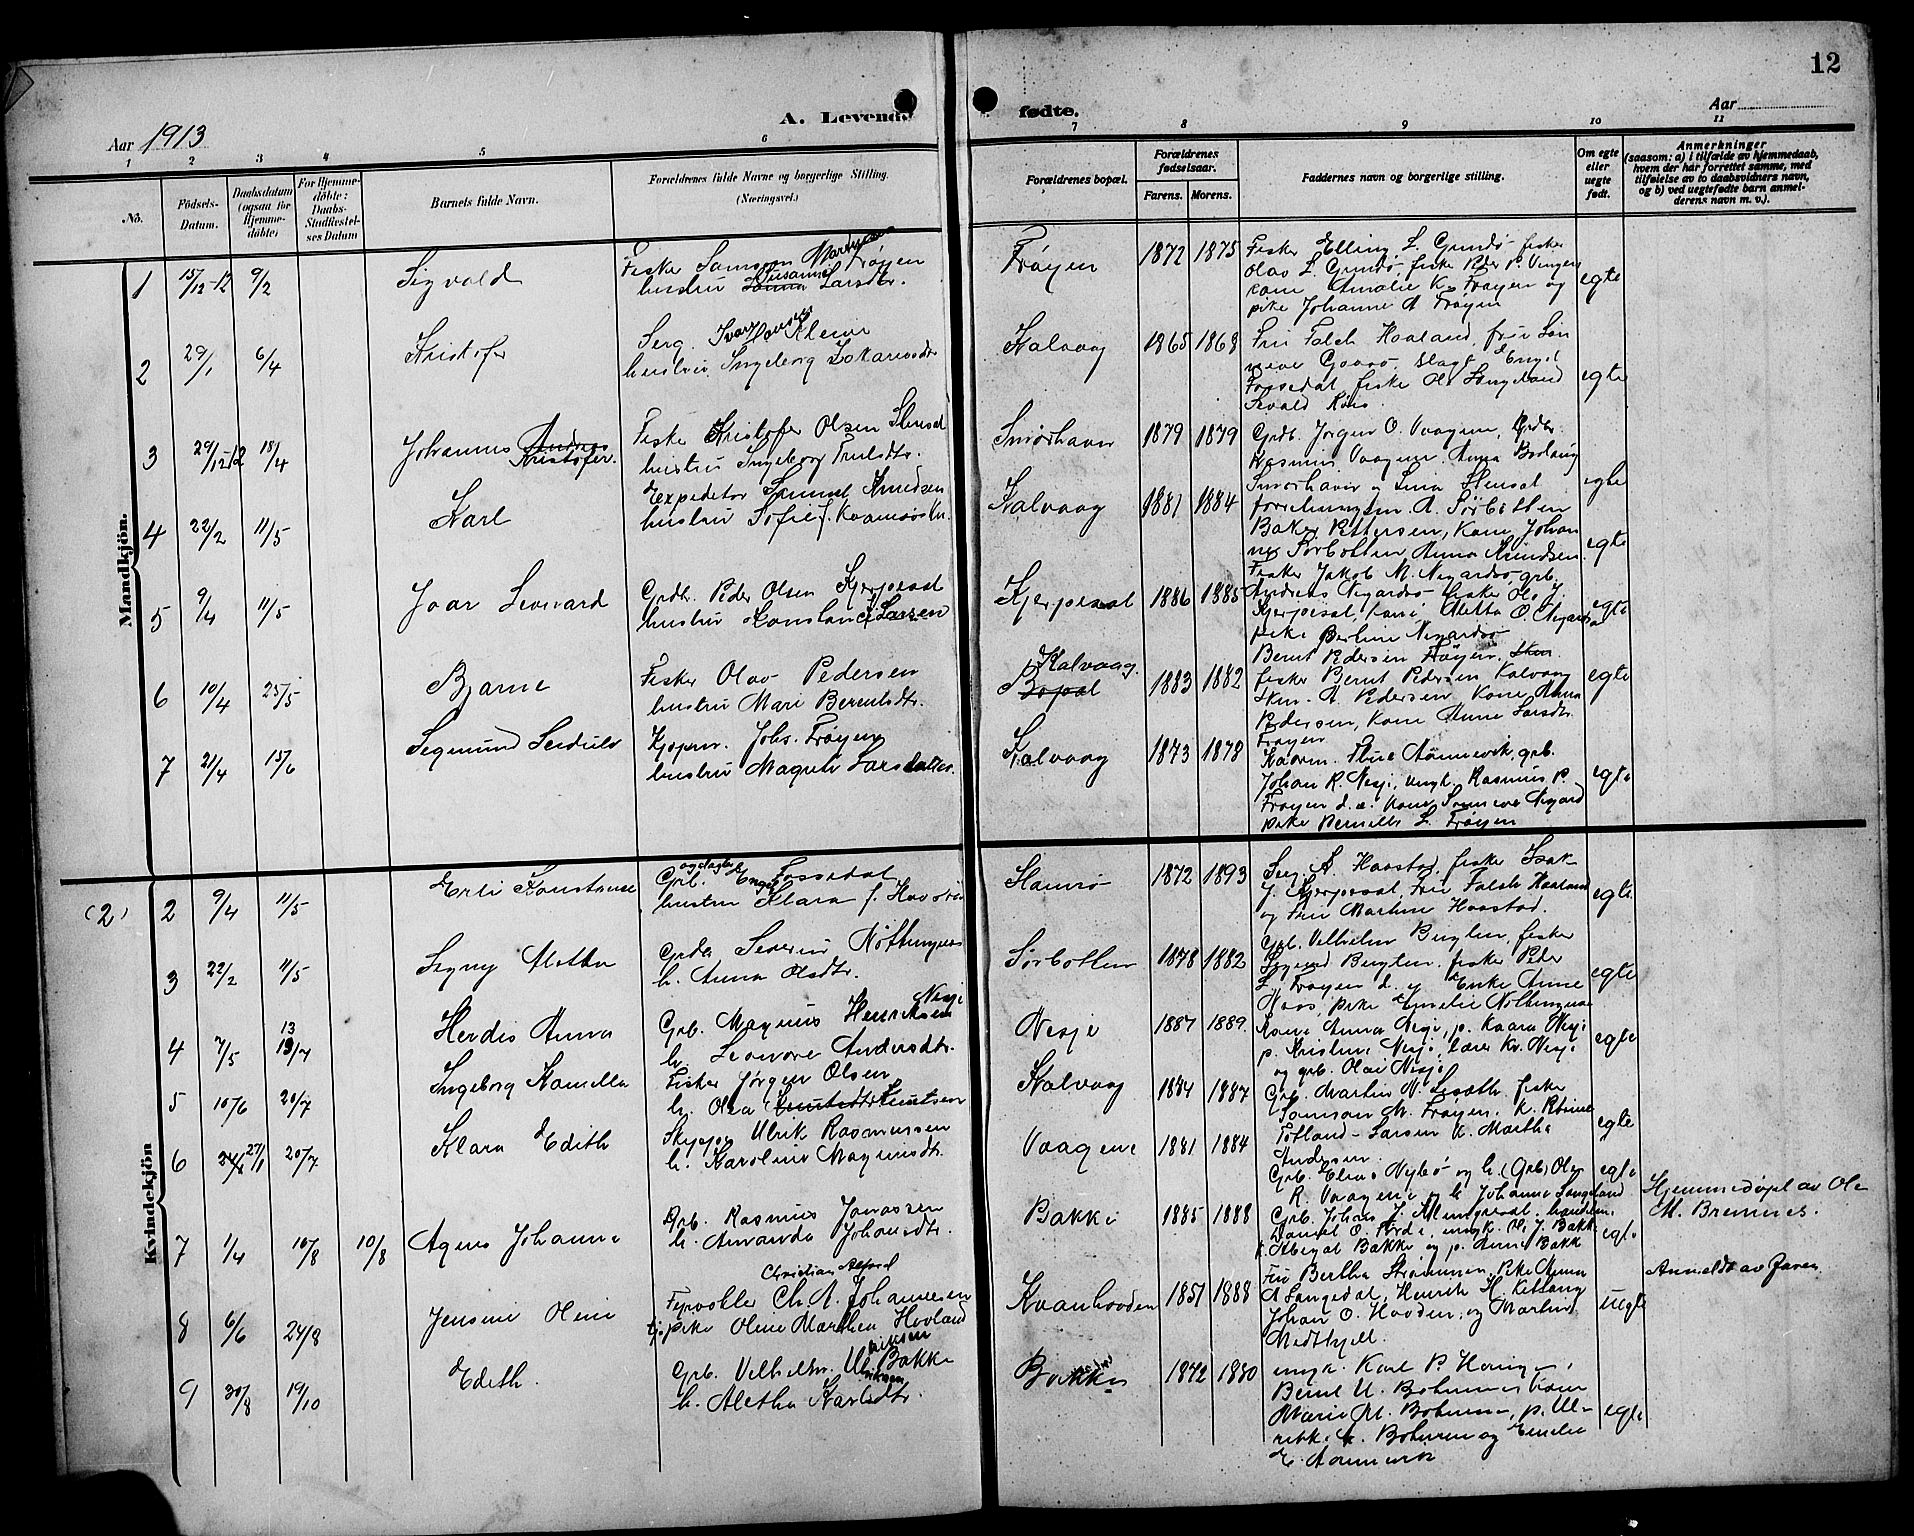 12
Aar 1913
A. Levende
fødte.
Aar
1 2 3 4 5 6
7 8 9 10 11
No.
Födsels-
Datum.
Daabsdatum
(ogsaa for
Hjemme-
döbte)
For Hjemme-
döbte:
Daabs-
Stadfæstel-
ses Datum
Barnets fulde Navn.
Forældrenes fulde Navne og borgerlige Stilling.
(Næringsvei.)
Forældrenes bopæl.
Forældrenes
fødselsaar.
Farens. Morens.
Faddernes navn og borgerlige stilling.
Om egte
eller
uegte
født.
Anmerkninger
(saasom: a) i tilfælde av hjemmedaab,
hvem der har forrettet samme, med
tilføielse av to daabsvidners navn,
og b) ved uegtefødte barn anmel-
derens navn m. v.).
Mandkjön.
1 15/12-12 9/2 Sigvald
Fisker Samson Martinsen Frøyen
hustru Susanne Larsdtr.
Frøyen 1872 1875
Fisker Elling L. Gundsø fisker
Olav L. Gundsø, fisker Peder P. Vingen
kone Amalie K. Frøyen og
pike Johanne A Frøyen
egte
2 29/1 6/4 Kristofer
Serg. Ivar Kleive
hustru Ingeborg Zakariasdtr
Kalvaag 1865 1868
Fru Falch Haaland, fru
Fossedal, fisker Ole Langeland
Sevald
egte
3 29/12-12 18/4 Johannes Andreas Kristofer.
Fisker Kristofer Olsen Stensal
hustru Ingeborg Truelsdtr.
Smørhavn 1879 1879
Grdb. Jørgen O. Vaagene, Grdbr.
Rasmus Vaagene Anna
Smørhavn
egte
4 22/2 11/5 Karl
Expeditør Samuel Knudsen
hustru Sofie f. Kvamsø
Kalvaag 1881 1884
A. Sørbotten
Baker Pettersen, Kone Johan
Sørbotten Anna Knudsen
egte
5 9/4 11/5 Joar Leonard
Grdbr. Peder Olsen Kjerpesal
hustru Konstance f. Larsen
Kjerpesal 1886 1885
Fisker Jakob M. Nigardsø, grb.
Andreas Nigardsø fisker Ole J.
Kjerpesal, Kone Aletta O. Nigards
pike Berline Nigardsø
egte
6 10/4 25/5 Bjarne
Fisker Olav Pedersen
hustru Mari Berentsdtr.
Kalvaag
Bopæl
1883 1882
Bernt Pedersen Frøyen,
fisker Bernt Pedersen Kalvaag
A. Pedersen Kone Anna
Pedersen, Kone Anne Larsdtr
Frøyen
egte
7 21/4 15/6 Sigmund Leidulv
Kjøpm. Johs. Frøyen
hustru Magnhi Larsdatter.
Kalvaag 1873 1878
Aannevik, grb.
Johan R. Nesje, ungk. Rasmus P.
Frøyen d. æ. Kone Nigard
pike Pernille L. Frøyen
egte
Kvindekjön
(2) 2 9/4 11/5 Erli Konstanse
Grb. og slagter Engel Fossedal
hustru Klara f. Haastad
Hamsø 1872 1893
Serg. A. Haastad, fisker Isak
J. Kjerpesal, Fru Falch Haaland
og Fru Martine Haastad.
egte
3 22/2 11/5 Signy Aletha
Grdbr Severin Nøttingnes
h. Anna Olsdtr.
Sørbotten 1878 1882
Grb. Velhelm Buglen, fisker
Sigurd Buglen, fisker Peder
L. Frøyen d. y Enke Anne
Haas, pike Emelie Nøttingnes
egte
4 7/5 13/7 Herdis Anna
Grb. Magnus Henriksen Nesje
h. Leonore Andersdtr.
Nesje 1887 1889.
Kone Anna Nesje, p. Kaara Nesje
p. Kristine Nesje, lærer Kr. Nesje
og grb. Olai Nesje
egte
5 10/6 20/7 Ingeborg Kamella
Fisker Jørgen Olsen
h. Olea Knutsdtr Knutsen
Kalvaag 1884 1887
Grb. Martin N. Liseth, fisker
Samson M. Frøyen, K. Petrine
Totland-Larsen K. Martha
Andersen.
egte
6 27/1 20/7 Klara Edith
Skipper Ulrik Rasmussen
h. Karoline Magnusdtr
Vaagene 1881 1884
Grb. Elias Nybø og h. (Grb) Ole
R. Vaagene og h. Johanne Langeland
egte
7 1/4 10/8 10/8 Agnes Johanne
Grb. Rasmus Jonassen
h. Amanda Johansdtr.
Bakke 1885 1888
Grb. Johans J.
Daniel O. Førde, ungk. Ole J. Bakke
k. Abegal Bakke og p. Anne Bakk
egte
Hjemmedøpt av Ole
M. Bremnes.
8 6/6 24/8 Jensine Oline
Christian Alfred
Ch. A. Johannesen
pike Oline Marthea Hovland
Kvanhovden 1851 1888
Fru Bertha Strømmen Pike Anna
A Langedal, Henrik H. Kittang
Johan O. Hovden, og Martin
Midthjell.
uegte
Anmeldt av Faren
9 30/8 19/10 Edith.
Grb. Velhelm Ulriksen Bakke
h. Aletha Karlsdtr
Bakke 1872 1880
ungk. Karl P. Hauge,
Bernt U. Botnen Kone
Marie M. Botnen, p. Ul-
rikke A. Botnen og Emelie
E. Aannevik
egte